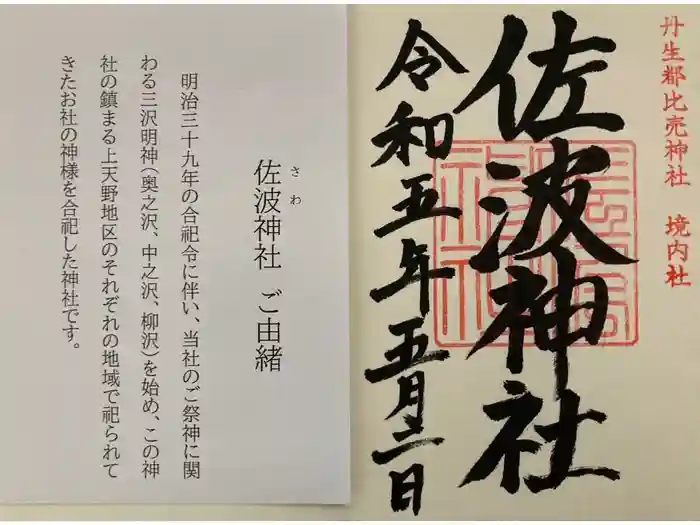 丹生都比売神社 境内社
佐波神社
令和五年五月二日
佐波神社 ご由緒
さわ
明治三十九年の合祀令に伴い、当社のご祭神に関
わる三沢明神(奥之沢、中之沢、柳沢)を始め、この神
社の鎮まる上天野地区のそれぞれの地域で祀られて
きたお社の神様を合祀した神社です。